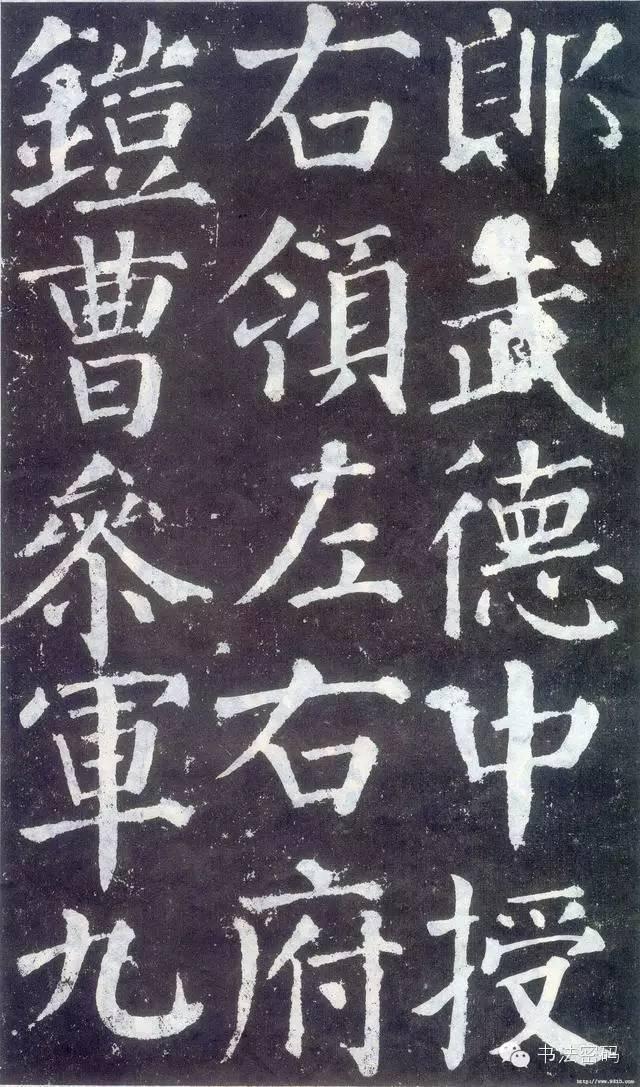 郎武德中授
右領左右府
鎧曹參軍九
书法密码
http://www.9610.com